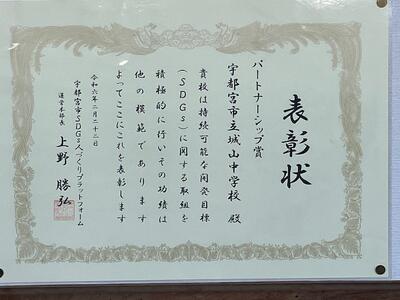 表彰状
パートナーシップ賞
宇都宮市立城山中学校 殿
貴校は持続可能な開発目標
(SDGs)に関する取組を
積極的に行いその功績は
他の模範であります
よってここにこれを表彰します
令和六年二月二十二日
宇都宮市SDGs人づくりプラットフォーム
運営本部長 上野 勝弘